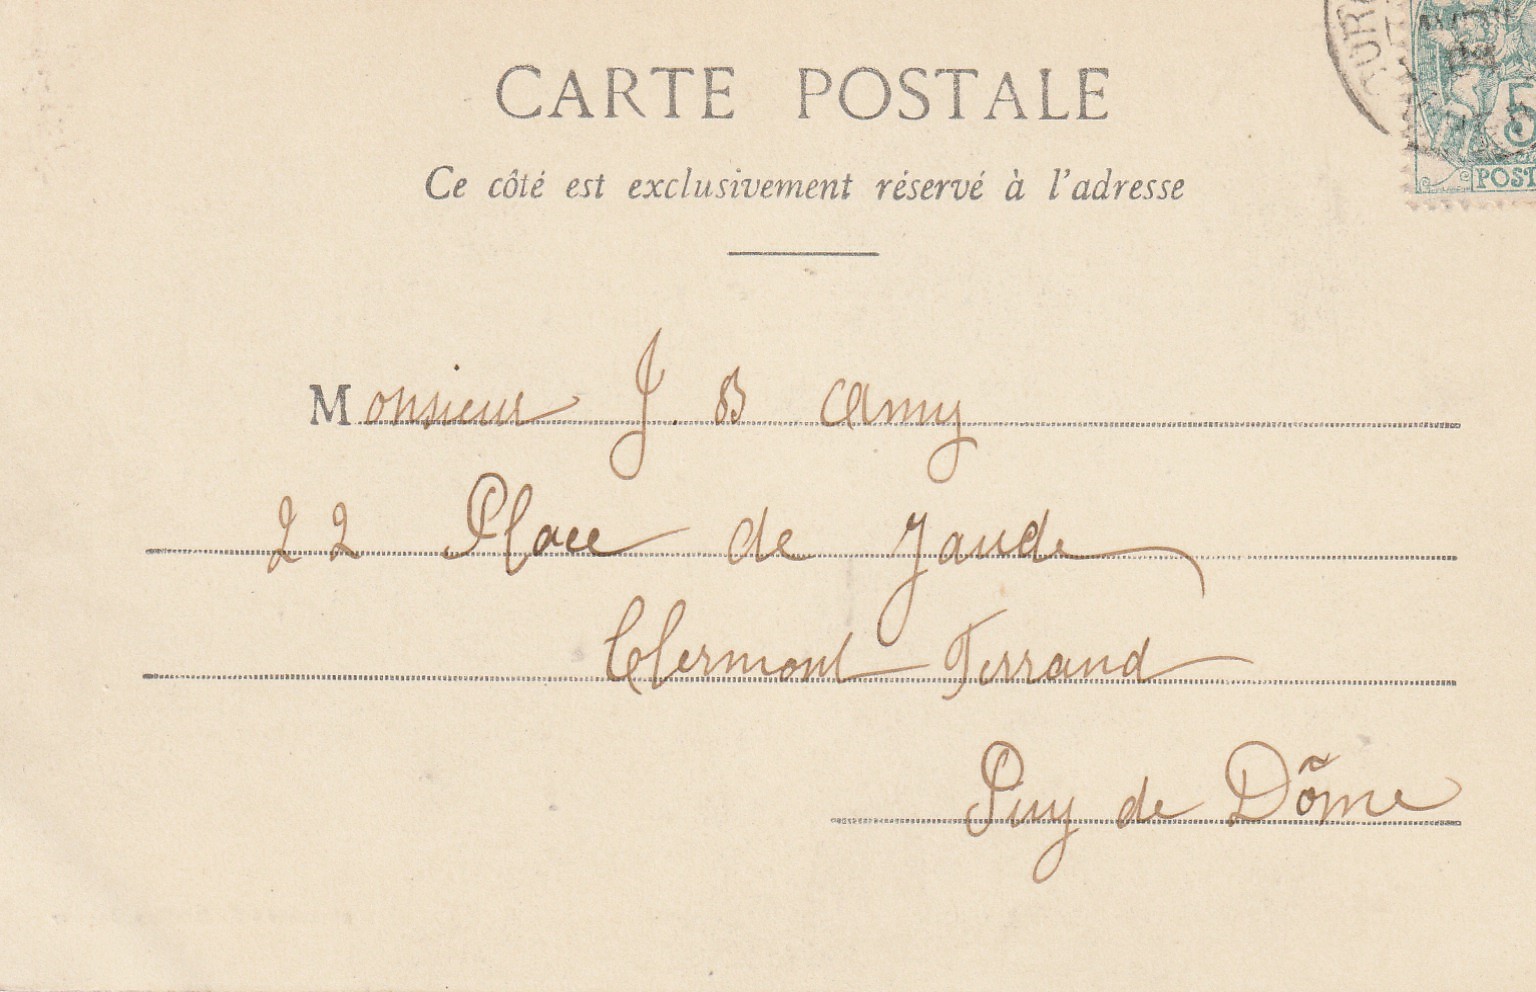 CARTE POSTALE
Ce côté est exclusivement réservé à l'adresse
Monsieur J. B Camy
22 Place de Jaude
Clermont Ferrand
Puy de Dôme
5
POST